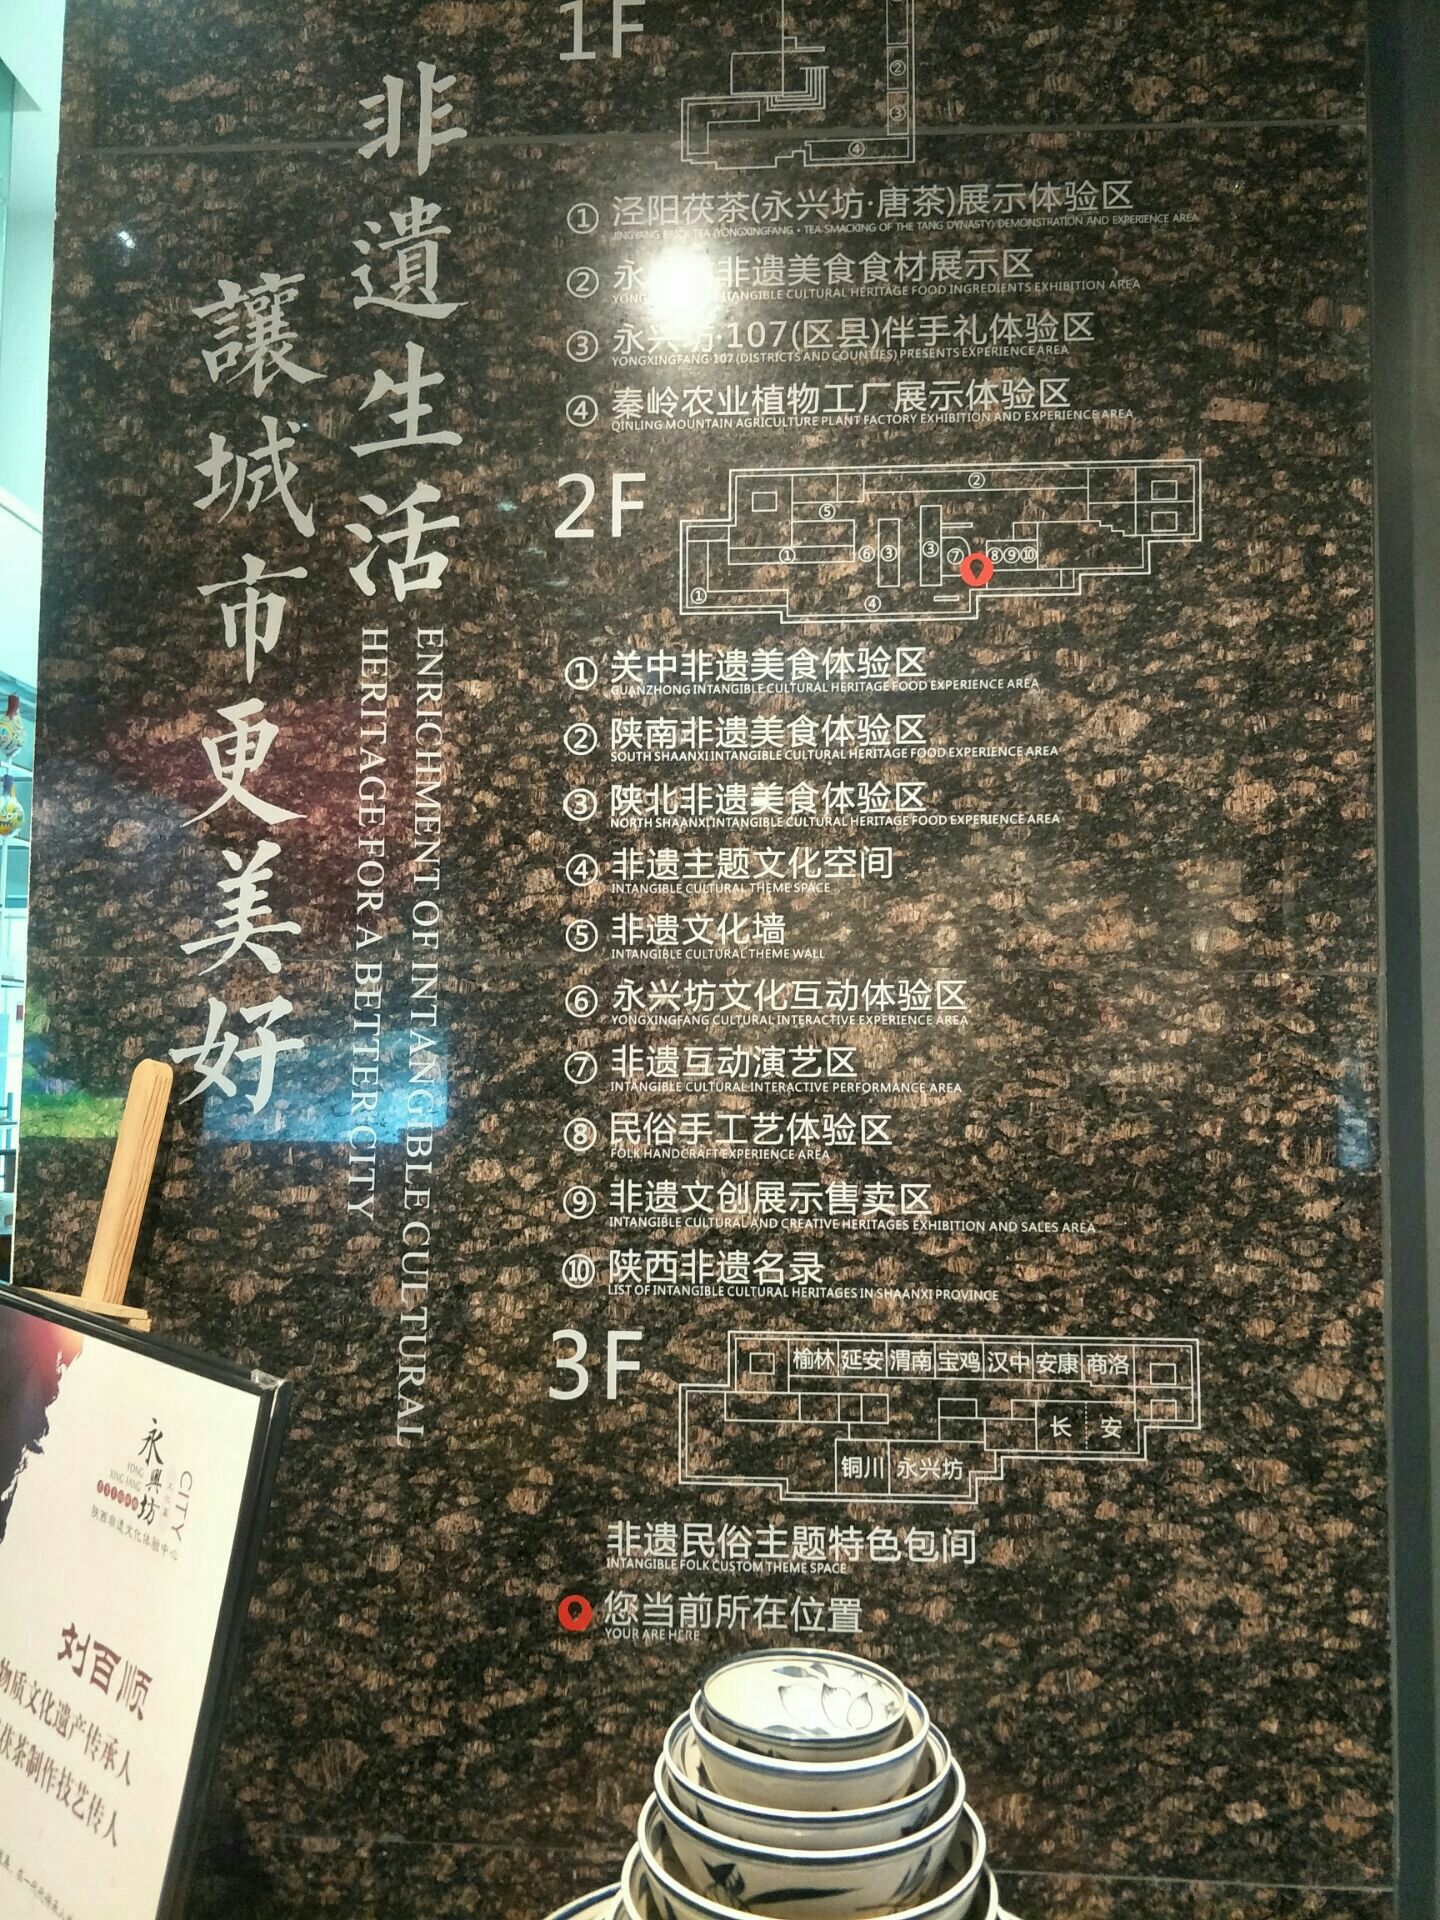 非遺生活
讓城市更美好
ENRICHMENT OF INTANGIBLE CULTURAL
HERITAGE FOR A BETTER CITY
1F
②
③
④
① 泾阳茯茶(永兴坊·唐茶)展示体验区
JINGYANG BRICK TEA (YONGXINGFANG · TEA SMACKING OF THE TANG DYNASTY) DEMONSTRATION AND EXPERIENCE AREA
② 永 非遗美食食材展示区
INTANGIBLE CULTURAL HERITAGE FOOD INGREDIENTS EXHIBITION AREA
③ 永兴坊·107(区县)伴手礼体验区
YONGXINGFANG·107 (DISTRICTS AND COUNTIES) PRESENTS EXPERIENCE AREA
④ 秦岭农业植物工厂展示体验区
QINLING MOUNTAIN AGRICULTURE PLANT FACTORY EXHIBITION AND EXPERIENCE AREA
2F
②
⑤
① ⑥ ③ ③ ⑦ ⑧ ⑨ ⑩
① ④
① 关中非遗美食体验区
GUANZHONG INTANGIBLE CULTURAL HERITAGE FOOD EXPERIENCE AREA
② 陕南非遗美食体验区
SOUTH SHAANXI INTANGIBLE CULTURAL HERITAGE FOOD EXPERIENCE AREA
③ 陕北非遗美食体验区
NORTH SHAANXI INTANGIBLE CULTURAL HERITAGE FOOD EXPERIENCE AREA
④ 非遗主题文化空间
INTANGIBLE CULTURAL THEME SPACE
⑤ 非遗文化墙
INTANGIBLE CULTURAL THEME WALL
⑥ 永兴坊文化互动体验区
YONGXINGFANG CULTURAL INTERACTIVE EXPERIENCE AREA
⑦ 非遗互动演艺区
INTANGIBLE CULTURAL INTERACTIVE PERFORMANCE AREA
⑧ 民俗手工艺体验区
FOLK HANDCRAFT EXPERIENCE AREA
⑨ 非遗文创展示售卖区
INTANGIBLE CULTURAL AND CREATIVE HERITAGES EXHIBITION AND SALES AREA
⑩ 陕西非遗名录
LIST OF INTANGIBLE CULTURAL HERITAGES IN SHAANXI PROVINCE
3F
榆林 延安 渭南 宝鸡 汉中 安康 商洛
长 安
铜川 永兴坊
非遗民俗主题特色包间
INTANGIBLE FOLK CUSTOM THEME SPACE
您当前所在位置
YOUR ARE HERE
永興坊
YONG
XING FANG
CITY
陕西非遗文化体验中心
刘百顺
物质文化遗产传承人
茯茶制作技艺传人